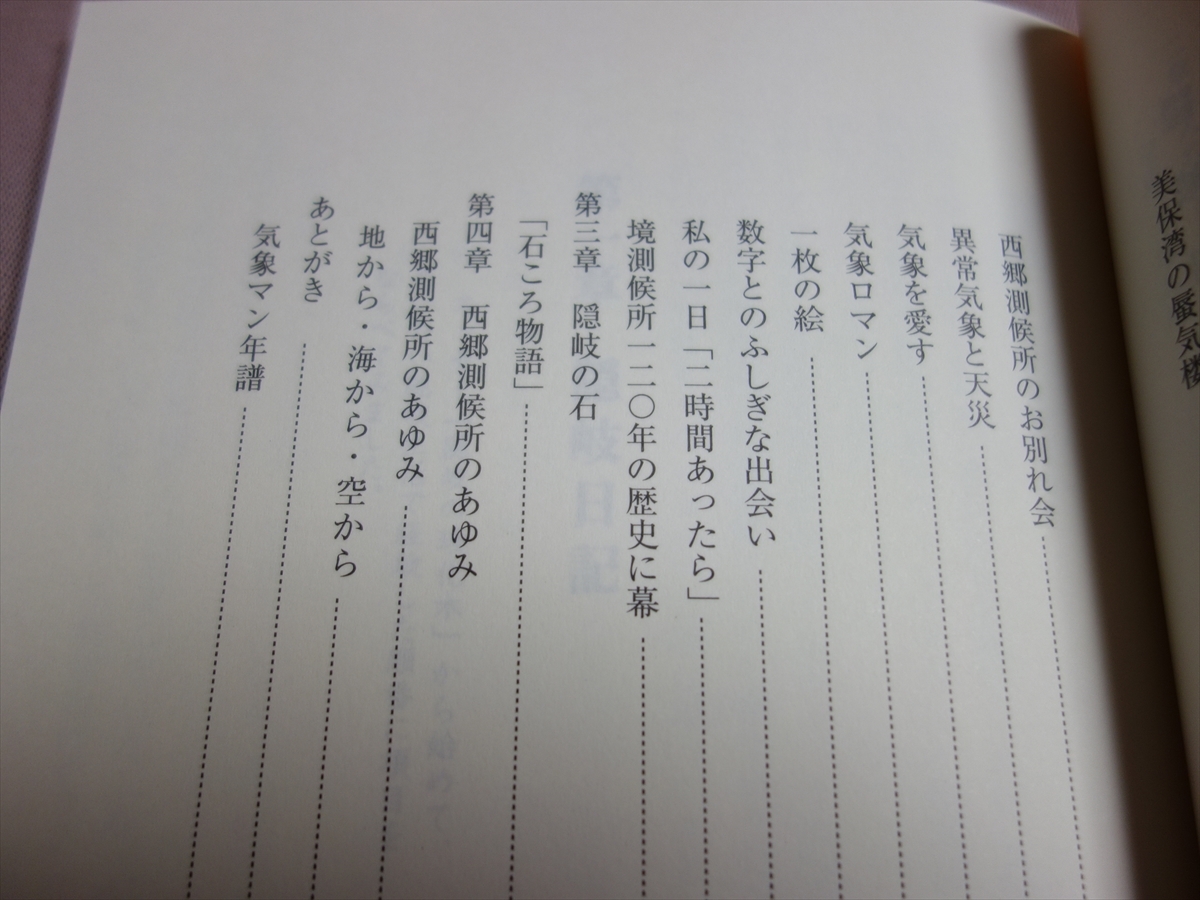 美保湾の蜃気楼
西郷測候所のお別れ会
異常気象と天災
気象を愛す
気象ロマン
一枚の絵
数字とのふしぎな出会い
私の一日「二時間あったら」
境測候所一二〇年の歴史に幕
第三章　隠岐の石
「石ころ物語」
第四章　西郷測候所のあゆみ
西郷測候所のあゆみ
地から・海から・空から
あとがき
気象マン年譜